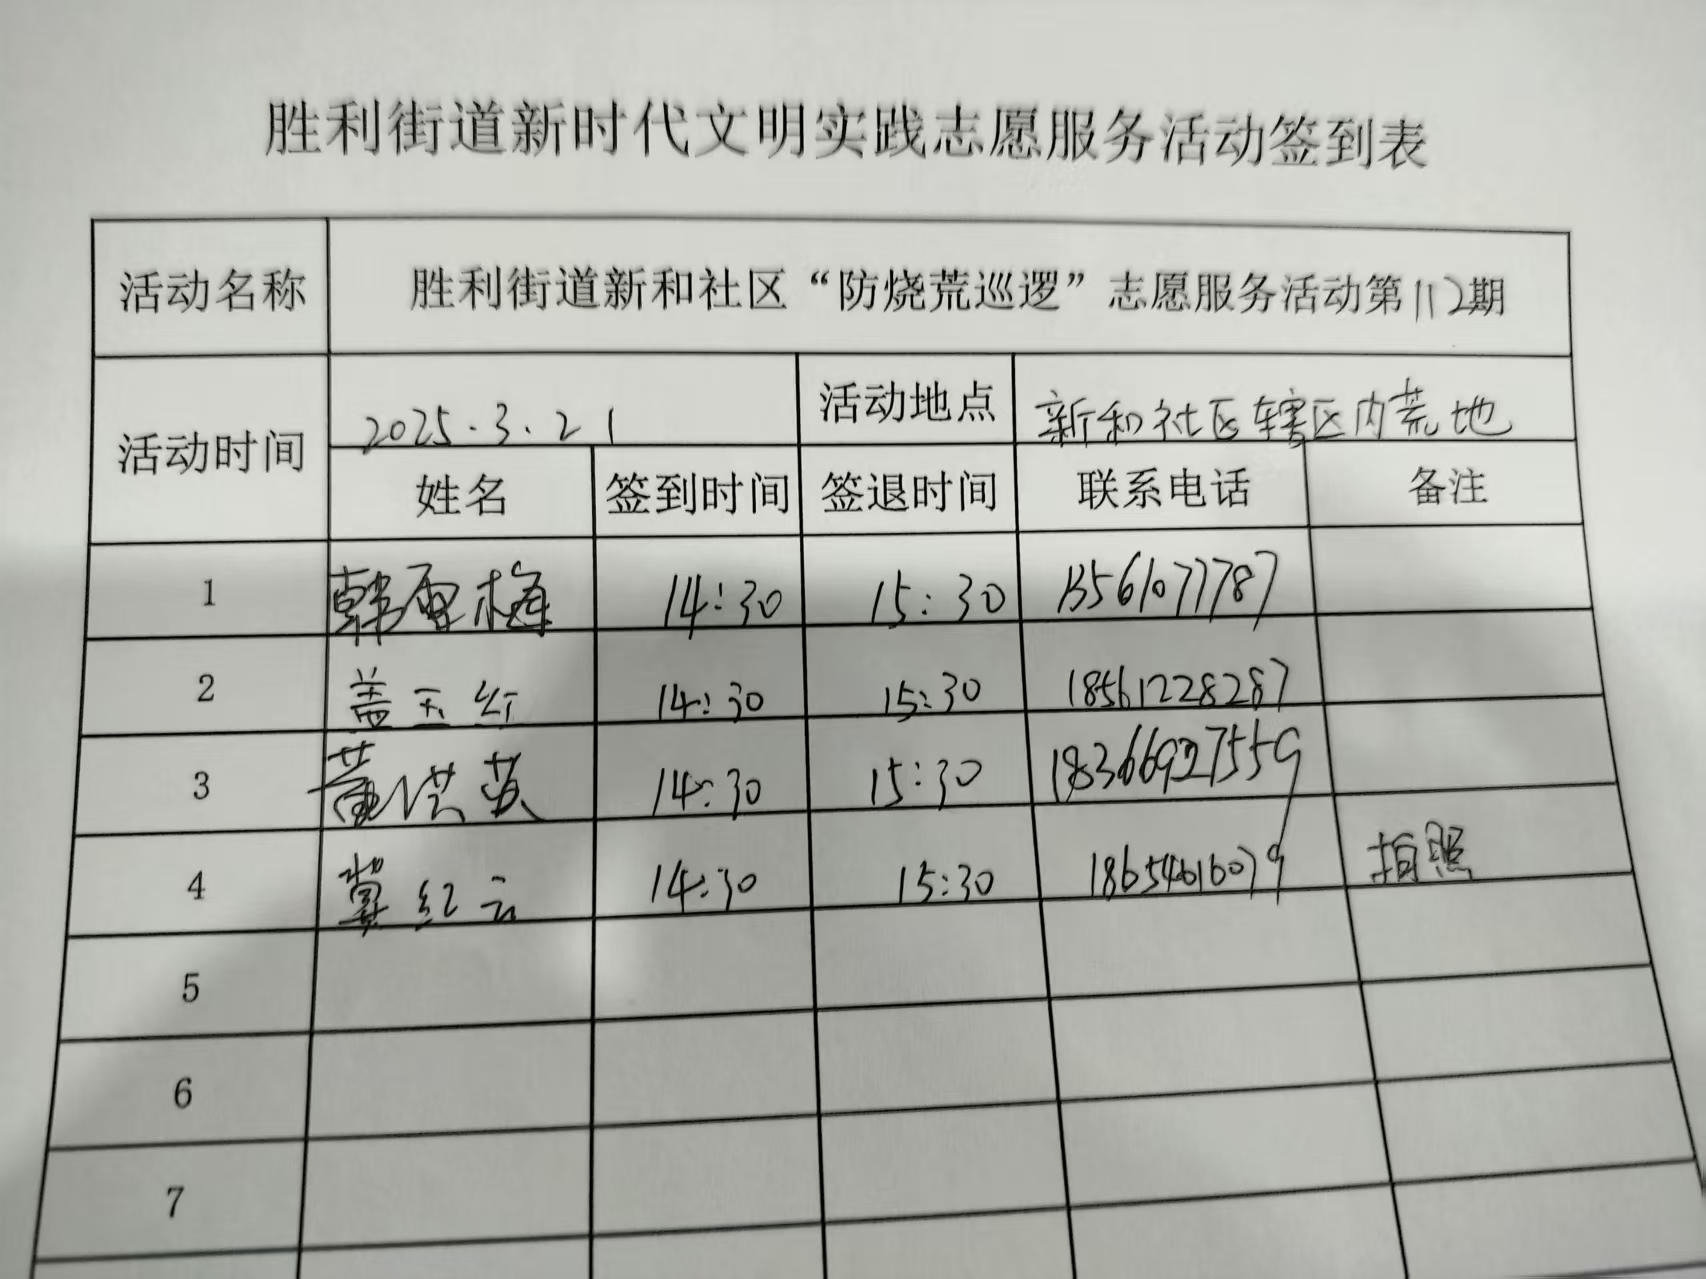 胜利街道新时代文明实践志愿服务活动签到表
活动名称 胜利街道新和社区“防烧荒巡逻”志愿服务活动第112期
活动时间 2025.3.21 活动地点 新和社区辖区内荒地
姓名 签到时间 签退时间 联系电话 备注
1 韩雪梅 14:30 15:30 13561077787
2 盖玉红 14:30 15:30 18561228287
3 黄洪英 14:30 15:30 18366927559
4 冀红云 14:30 15:30 18654616079 拍照
5
6
7